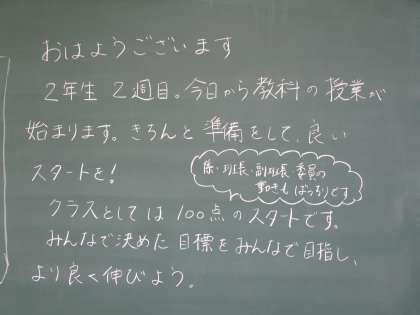 おはようございます
2年生 2週目。今日から教科の授業が
始まります。きちんと準備をして、良い
スタートを!
係・班長・副班長・委員の
動きもばっちりです
クラスとしては100点のスタートです。
みんなで決めた目標をみんなで目指し、
より良く伸びよう。